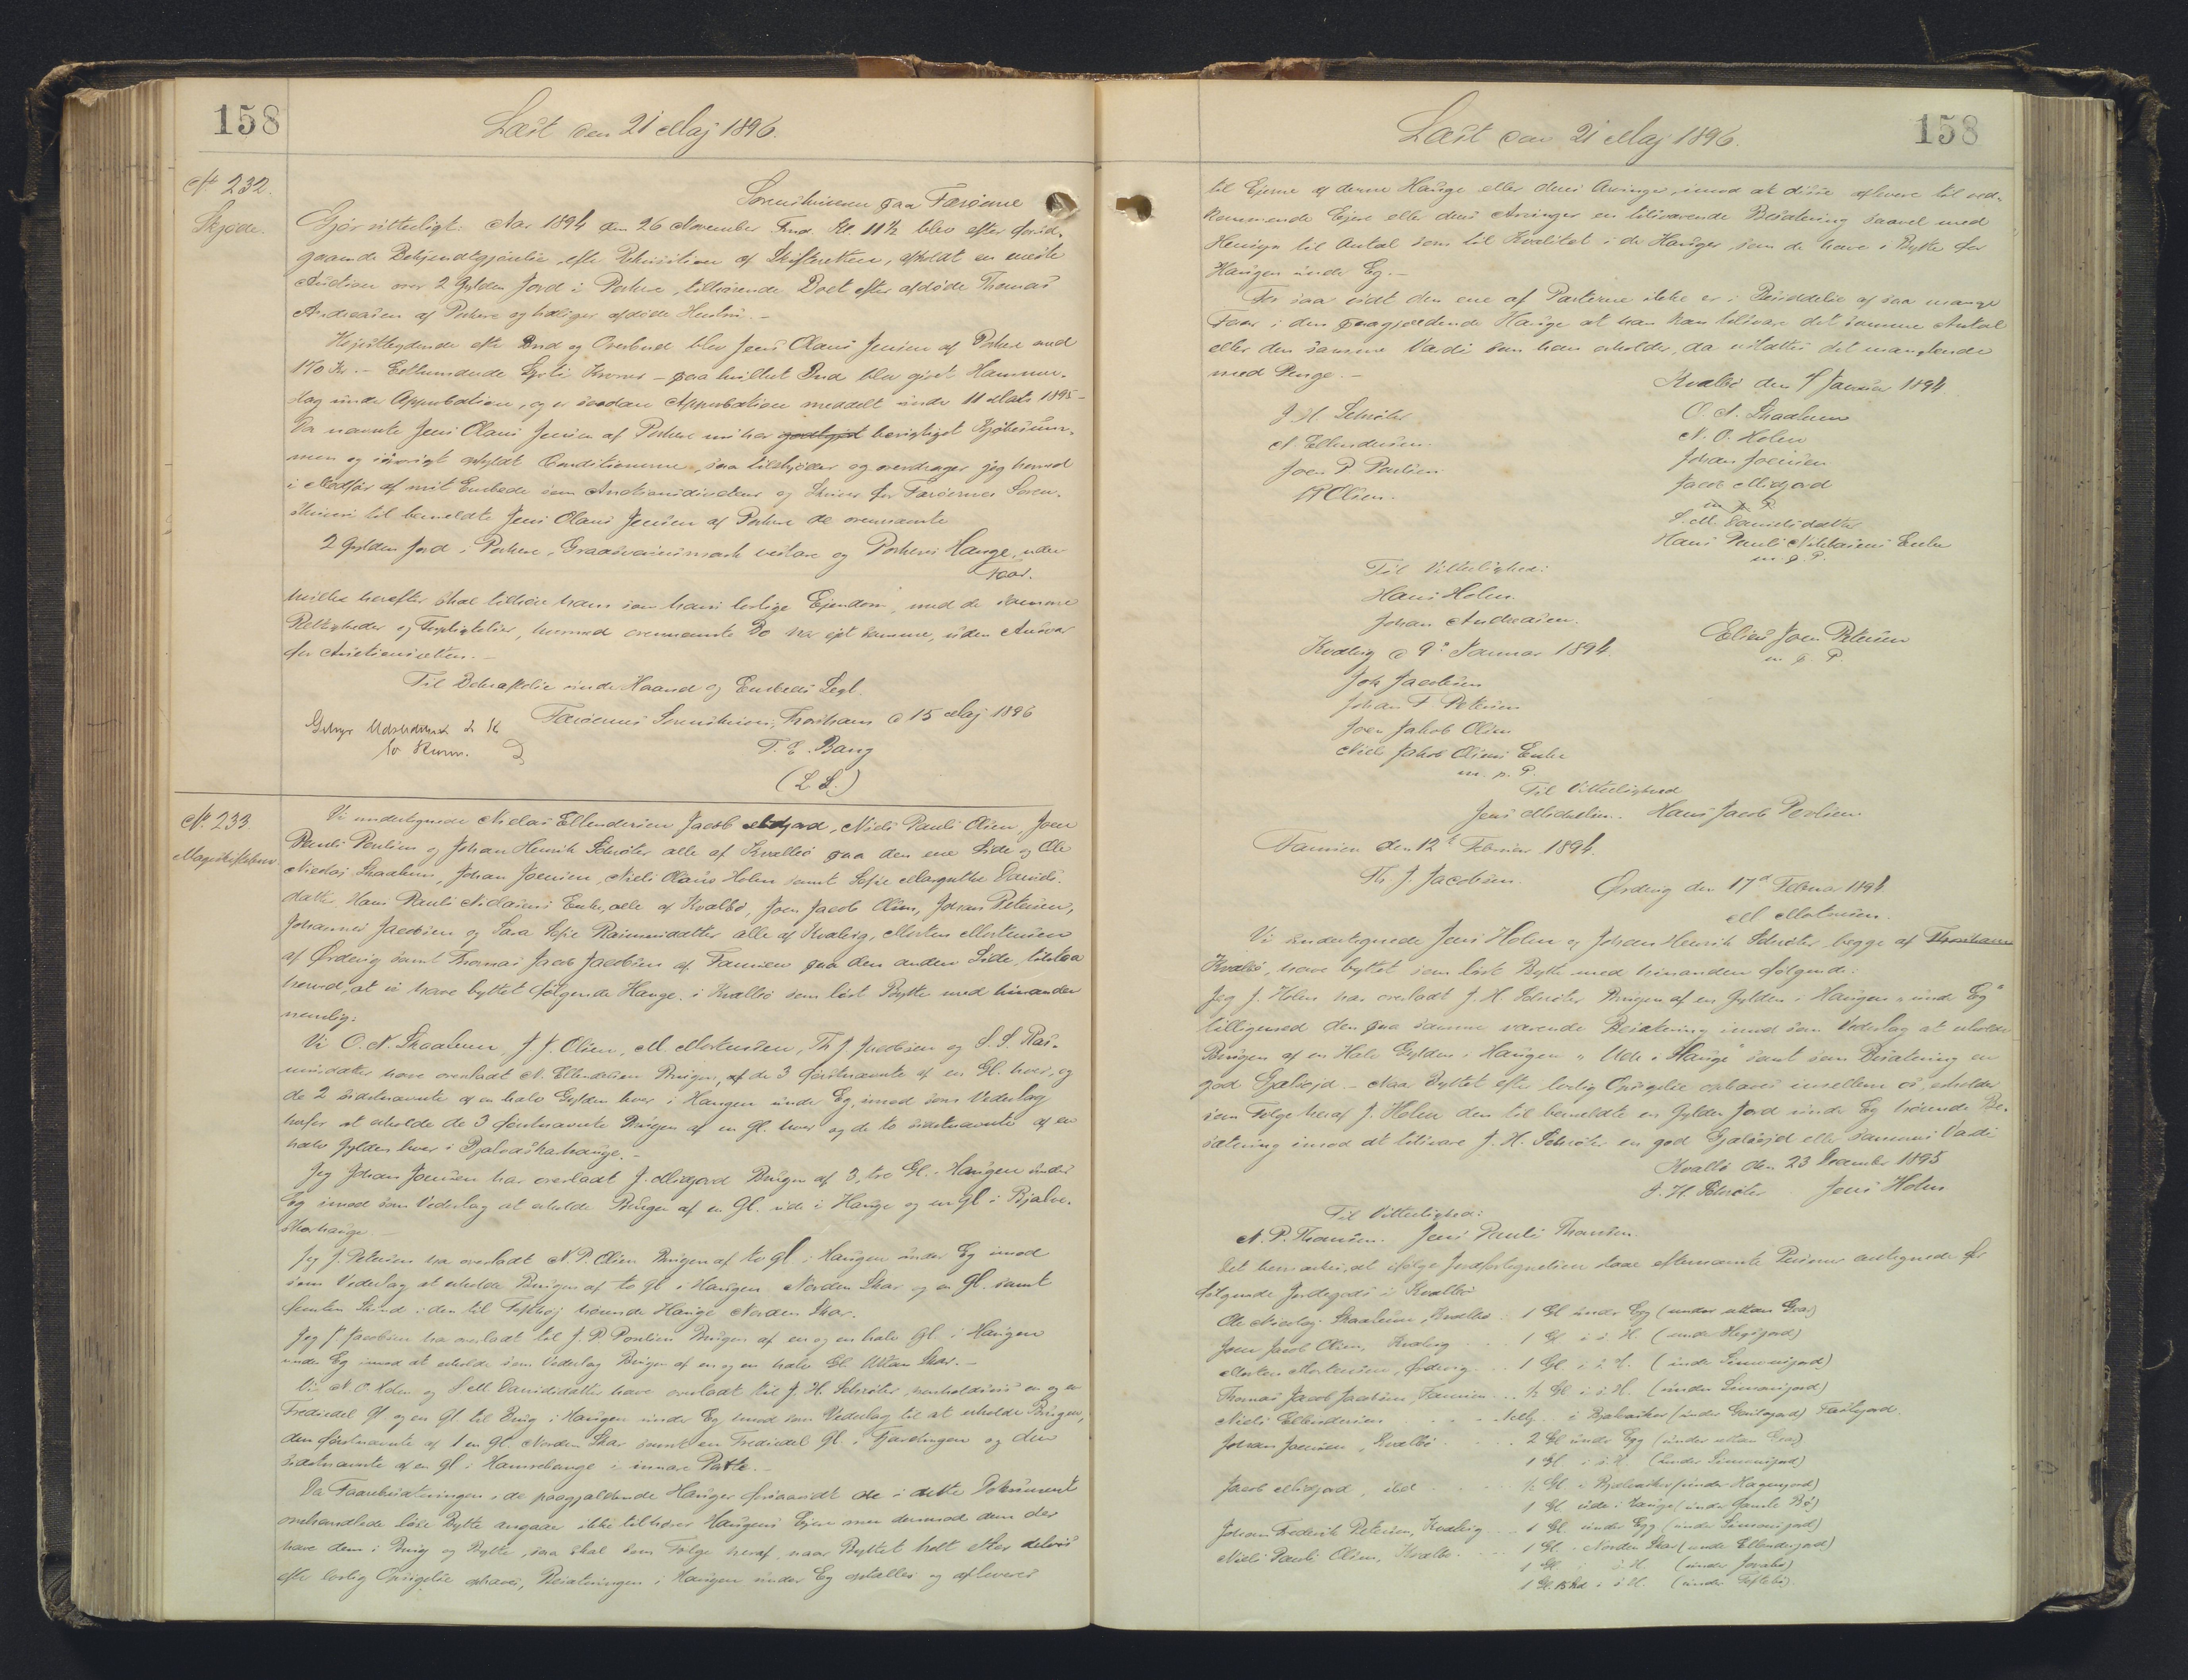 158
Læst den 21 Maj 1896.
No 232.
Skjøde.
Sorenskriveren paa Færøerne
Gjør vitterligt: Aar 1894 den 26 November Fmd. Kl. 11½ blev efter forud-
gaaende Bekjendtgjørelse, efter Rekvisition af Skifteretten, afholdt en
Auction over 2 Gylden Jord i Porkere, tilhørende Boet efter afdøde Thomas
Andreasen af Porkere og tidligere afdøde Hustru.-
Højestbydende efter Bud og Overbud blev Jens Olaus Jensen af Porkere med
170 Kr. - Eethundrede Kroner - paa hvilket Bud blev givet Hammer-
slag under Approbation, og er saadan Approbation meddelt under 11 Marts 1895-
Da nævnte Jens Olaus Jensen af Porkere nu har godtgjort berigtiget Kjøbesum-
men og iøvrigt opfyldt Conditionerne, saa tilskjøder og overdrager jeg herved
i Medfør af mit Embede som Auctionsdirecteur og Skriver for Færøernes Soren-
skriveri til bemeldte Jens Olaus Jensen af Porkere de ovennævnte
2 Gylden Jord i Porkere, vestare og Porkeris Hauge, uden
Faar.
hvilke herefter skal tilhøre ham som hans lovlige Ejendom, med de samme
Rettigheder og Forpligtelser, hvormed ovennævnte Bo har ejet samme, uden Ansvar
for Auctionsretten.-
Til Bekræftelse under Haand og Embeds Segl.
Færøernes Sorenskriveri, Thorshavn d 15 Maj 1896
T. E. Bang
(L. S.)
No 233
Mageskiftebrev
Vi undertegnede Niclas Ellendersen Jacob Midjord, Niels Pauli Olsen, Joen
Pauli Poulsen og Johan Henrik Schrøter alle af Kvalbø paa den ene Side og Ole
Nicolaj Skaalum, Johan Joensen, Niels Olaus Holm samt Sofie Margrethe Davids-
datter, Hans Pauli Niclasens Enke, alle af Kvalbø, Joen Jacob Olsen, Johan Petersen,
Johannes Jacobsen og Sara Sofie Rasmusdatter alle af Kvalvig, Morten Mortensen
af Ørdevig samt Thomas Jacob Jacobsen af Famien paa den anden Side, tilstaa
herved, at vi have byttet følgende Hauge i Kvalbø som løst Bytte med hinanden
nemlig:
Vi O. N. Skaalum, J. J. Olsen, M. Mortensen, Th J Jacobsen og S. S. Ras-
musdatter have overladt N. Ellendersen Brugen, af de 3 førstnævnte af en Gl. hver, og
de 2 sidstnævnte af en halv Gylden hver i Haugen under Eg, imod som Vederlag
herfor at erholde de 3 førstnævnte Brugen af en Gl. hver og de to sidstnævnte af en
halv Gylden hver i Bjalvaskarhauge.-
Jeg Johan Joensen har overladt J. Midjord Brugen af 3, tre Gl. i Haugen under
Eg imod som Vederlag at erholde Brugen af en Gl. ude i Hauge og en Gl i Bjalve-
skarhauge -
Jeg J. Petersen har overladt N. P. Olsen Brugen af to Gl i Haugen under Eg imod
som Vederlag at erholde Brugen af to Gl i Haugen Norden Skar og en Gl. samt
femten Skind i den til Toftehøj hørende Hauge Norden Skar.
Jeg J Jacobsen har overladt til J. P. Poulsen Brugen af en og en halv Gl. i Haugen
under Eg imod at erholde som Vederlag Brugen af en og en halv Gl. Uttan Skar.-
Vi N. O. Holm og S M Davidsdatter have overladt til J. H. Schrøter, henholdsvis en og en
Trediedel Gl og en Gl til Brug i Haugen under Eg imod som Vederlag til at erholde Brugen,
den førstnævnte af 1 en Gl. Norden Skar samt en Trediedel Gl. i og den
sidstnævnte af en Gl i i innare Parte.-
Da Faarebesætningen i de paagjældende Hauger forsaavidt de i dette Dokument
omhandlede løse Bytte angaar ikke tilhører Haugens Ejere men dermod dem der
have dem i Brug og Bytte, saa skal som Følge heraf, naar Byttet helt eller delvis
efter lovlig Opsigelse ophæves, Besætningen i Haugen under Eg optælles og afleveres
Læst den 21 Maj 1896.
158
til Ejerne af denne Hauge eller deres Arvinger, imod at disse aflevere til ved-
kommende Ejere eller deres Arvinger en tilsvarende Besætning saavel med
Hensyn til Antal som til Kvalitet i de Hauger, som de have i Bytte for
Haugen under Eg.-
For saa vidt den ene af Parterne ikke er i Besiddelse af saa mange
Faar i den paagjældende Hauge at han kan tilsvare det samme Antal
eller den samme Værdi som han erholder, da erstattes det manglende
med Penge.-
Kvalbø den 4 Januar 1894
J. H. Schrøter
N. Ellendersen.
Joen P. Poulsen
N P Olsen.
O. N. Skaalum
N. O. Holm
Johan Joensen
Jacob Midjord
m. p. P.
S. M. Davidsdatter
Hans Pauli Niklasens Enke
m. p. P.
Til Vitterlighed:
Hans Holm.
Johan Andreasen.
Kvalvig d 9' Januar 1894
Elias Joen Petersen
m. p. P.
Joh Jacobsen
Johan F. Petersen
Joen Jakob Olsen
Niels Jakob Olsens Enke
m. p. P.
Til Vitterlighed
Jens Michelsen. Hans Jacob Poulsen
Famien den 12t Februar 1894.
Th. J. Jacobsen.
Ørdevig den 17d Februar 1894
M Mortensen.
Vi undertegnede Jens Holm og Johan Henrik Schrøter begge af Thorshavn
Kvalbø, have byttet som løst Bytte med hinanden følgende:
Jeg J. Holm har overladt J. H. Schrøter Brugen af en Gylden i Haugen "under Eg"
tilligemed den paa samme værende Besætning imod som Vederlag at erholde
Brugen af en Halv Gylden i Haugen "Ude i Hauge" samt som Besætning en
god Gjælsejd.- Naar Byttet efter lovlig Opsigelse ophæves imellem os, erholder
som Følge heraf J. Holm den til bemeldte en Gylden Jord under Eg hørende Be-
sætning imod at tilsvare J. H. Schrøter en god Gjælsejd eller sammes Værdi
Kvalbø den 23 December 1895
J. H. Schrøter. Jens Holm
Til Vitterlighed:
N. P. Thomsen. Jens Pauli Thomsen.
Det bemærkes, at ifølge Jordfortegnelsen staar efternævnte Personer antegnede for
følgende Jordegods i Kvalbø
Ole Nicolaj Skaalum, Kvalbø. 1 Gl under Egg (under uttan Gvar)
Joen Jacob Olsen, Kvalvig 1 Gl i s. H. (under Hegsjord)
Morten Mortensen, Ørdevig. 1 Gl i s. H. (under Simonsjord)
Thomas Jacob Jacobsen, Famien ½ Gl i s. H. (under Simonsjord)
Niels Ellendersen
Johan Joensen, Kvalbø 2 Gl under Egg (under uttan Gvar)
1 Gl i s. H. (under Simonsjord)
Jacob Midjord, ibd ½ Gl i Bjalvaskor (under Hagenjord)
1 Gl ude i Hauge (under Gamle Bø)
Johan Frederik Petersen, Kvalvig 1 Gl. under Egg (under Simonsjord)
Niels Pauli Olsen, Kvalbø. 1 Gl. i Norden Skar (under Ellendersjord)
1 Gl i s. H. (under )
1 Gl. 15 Skd i s. H. (under Toftebø)